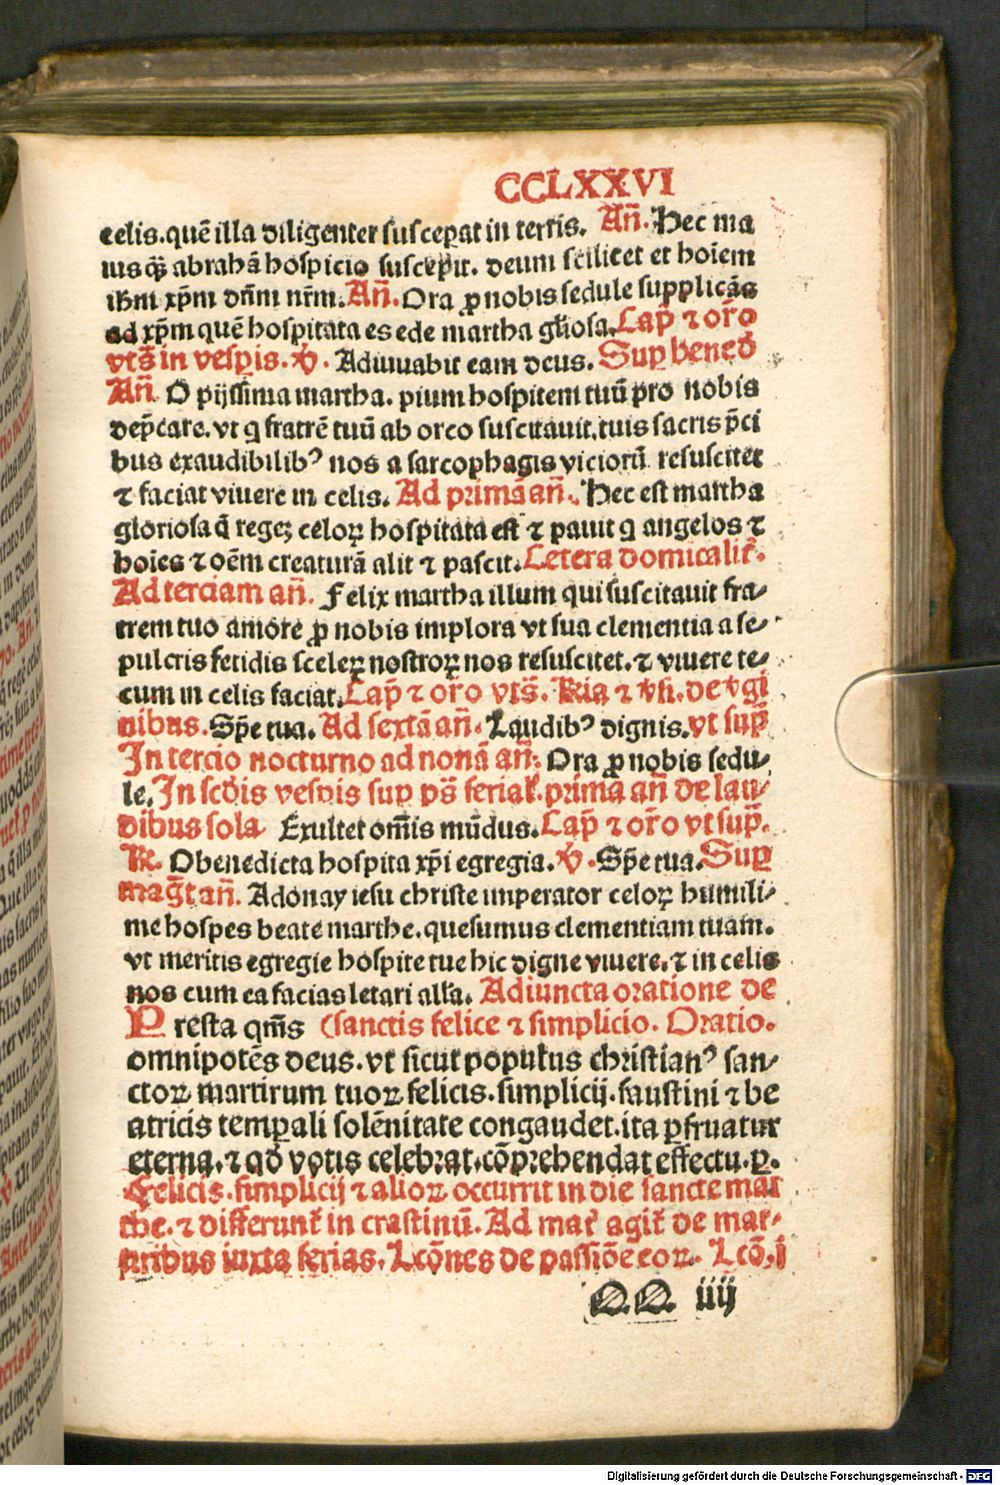 CCLXXVI
celis. quē illa diligenter susceperat in terris. Añ. Hec ma
iusqȝ abrahā hospicio suscepit. deum scilicet et hoīem
ihm xp̄m dn̄m nr̄m. Añ. Ora ꝓ nobis sedule supplicās
ad xp̄m quē hospitata es ede martha gl̄iosa. Cap̄ ⁊ or̄o
vts̄ in vesp̄is. ꝟ. Adiuuabit eam deus. Suꝑ bened̄
Añ. O pijssima martha. pium hospitem tuū pro nobis
dep̄care. vt q̄ fratrē tuū ab orco suscitauit. tuis sacris p̄ci
bus exaudibilibꝰ nos a sarcophagis viciorū resuscitet
⁊ faciat viuere in celis. Ad primā añ. Hec est martha
gloriosa q̄ regeȝ celoꝝ hospitata est ⁊ pauit q̄ angelos ⁊
hoīes ⁊ oēm creaturā alit ⁊ pascit. Cetera domicalit̄.
Ad terciam añ. Felix martha illum qui suscitauit fra⸗
trem tuo amore ꝓ nobis implora vt sua clementia a se⸗
pulcris fetidis sceleꝝ nostroꝝ nos resuscitet. ⁊ viuere te⸗
cum in celis faciat. Cap̄ ⁊ or̄o vts̄. Rīa ⁊ ꝟsi. de ꝟgi
nibus. Sp̄e tua. Ad sextā añ. Laudibꝰ dignis. vt sup̄
In tercio nocturno ad nonā añ. Ora ꝓ nobis sedu⸗
le. In scd̄is vesp̄is suꝑ ps̄ ferial̄. prima añ de lau⸗
dibus sola Exultet om̄is mūdus. Cap̄ ⁊ or̄o vt sup̄.
℟. O benedicta hospita xp̄i egregia. ꝟ. Sp̄e tua. Suꝑ
maḡt añ. Adonay iesu christe imperator celoꝝ humili⸗
me hospes beate marthe. quesumus clementiam tuam.
vt meritis egregie hospite tue hic digne viuere. ⁊ in celis
nos cum ea facias letari all̄a. Adiuncta oratione de
Presta qm̄s (sanctis felice ⁊ simplicio. Oratio.
omnipotēs deus. vt sicut populus christianꝰ san⸗
ctoꝝ martirum tuoꝝ felicis. simplicij. faustini ⁊ be
atricis temꝑali solēnitate congaudet. ita ꝑfruatur
eterna. ⁊ qd̄ votis celebrat. cōprehendat effectu. ꝑ.
Felicis. simplicij ⁊ alioꝝ occurrit in die sancte mar
the. ⁊ differunt̄ in crastinū. Ad mat̄ agit̄ de mar⸗
tiribus iuxta ferias. Lcōnes de passiōe eoꝝ. Lcō. j
QQ iiij
Digitalisierung gefördert durch die Deutsche Forschungsgemeinschaft - DFG